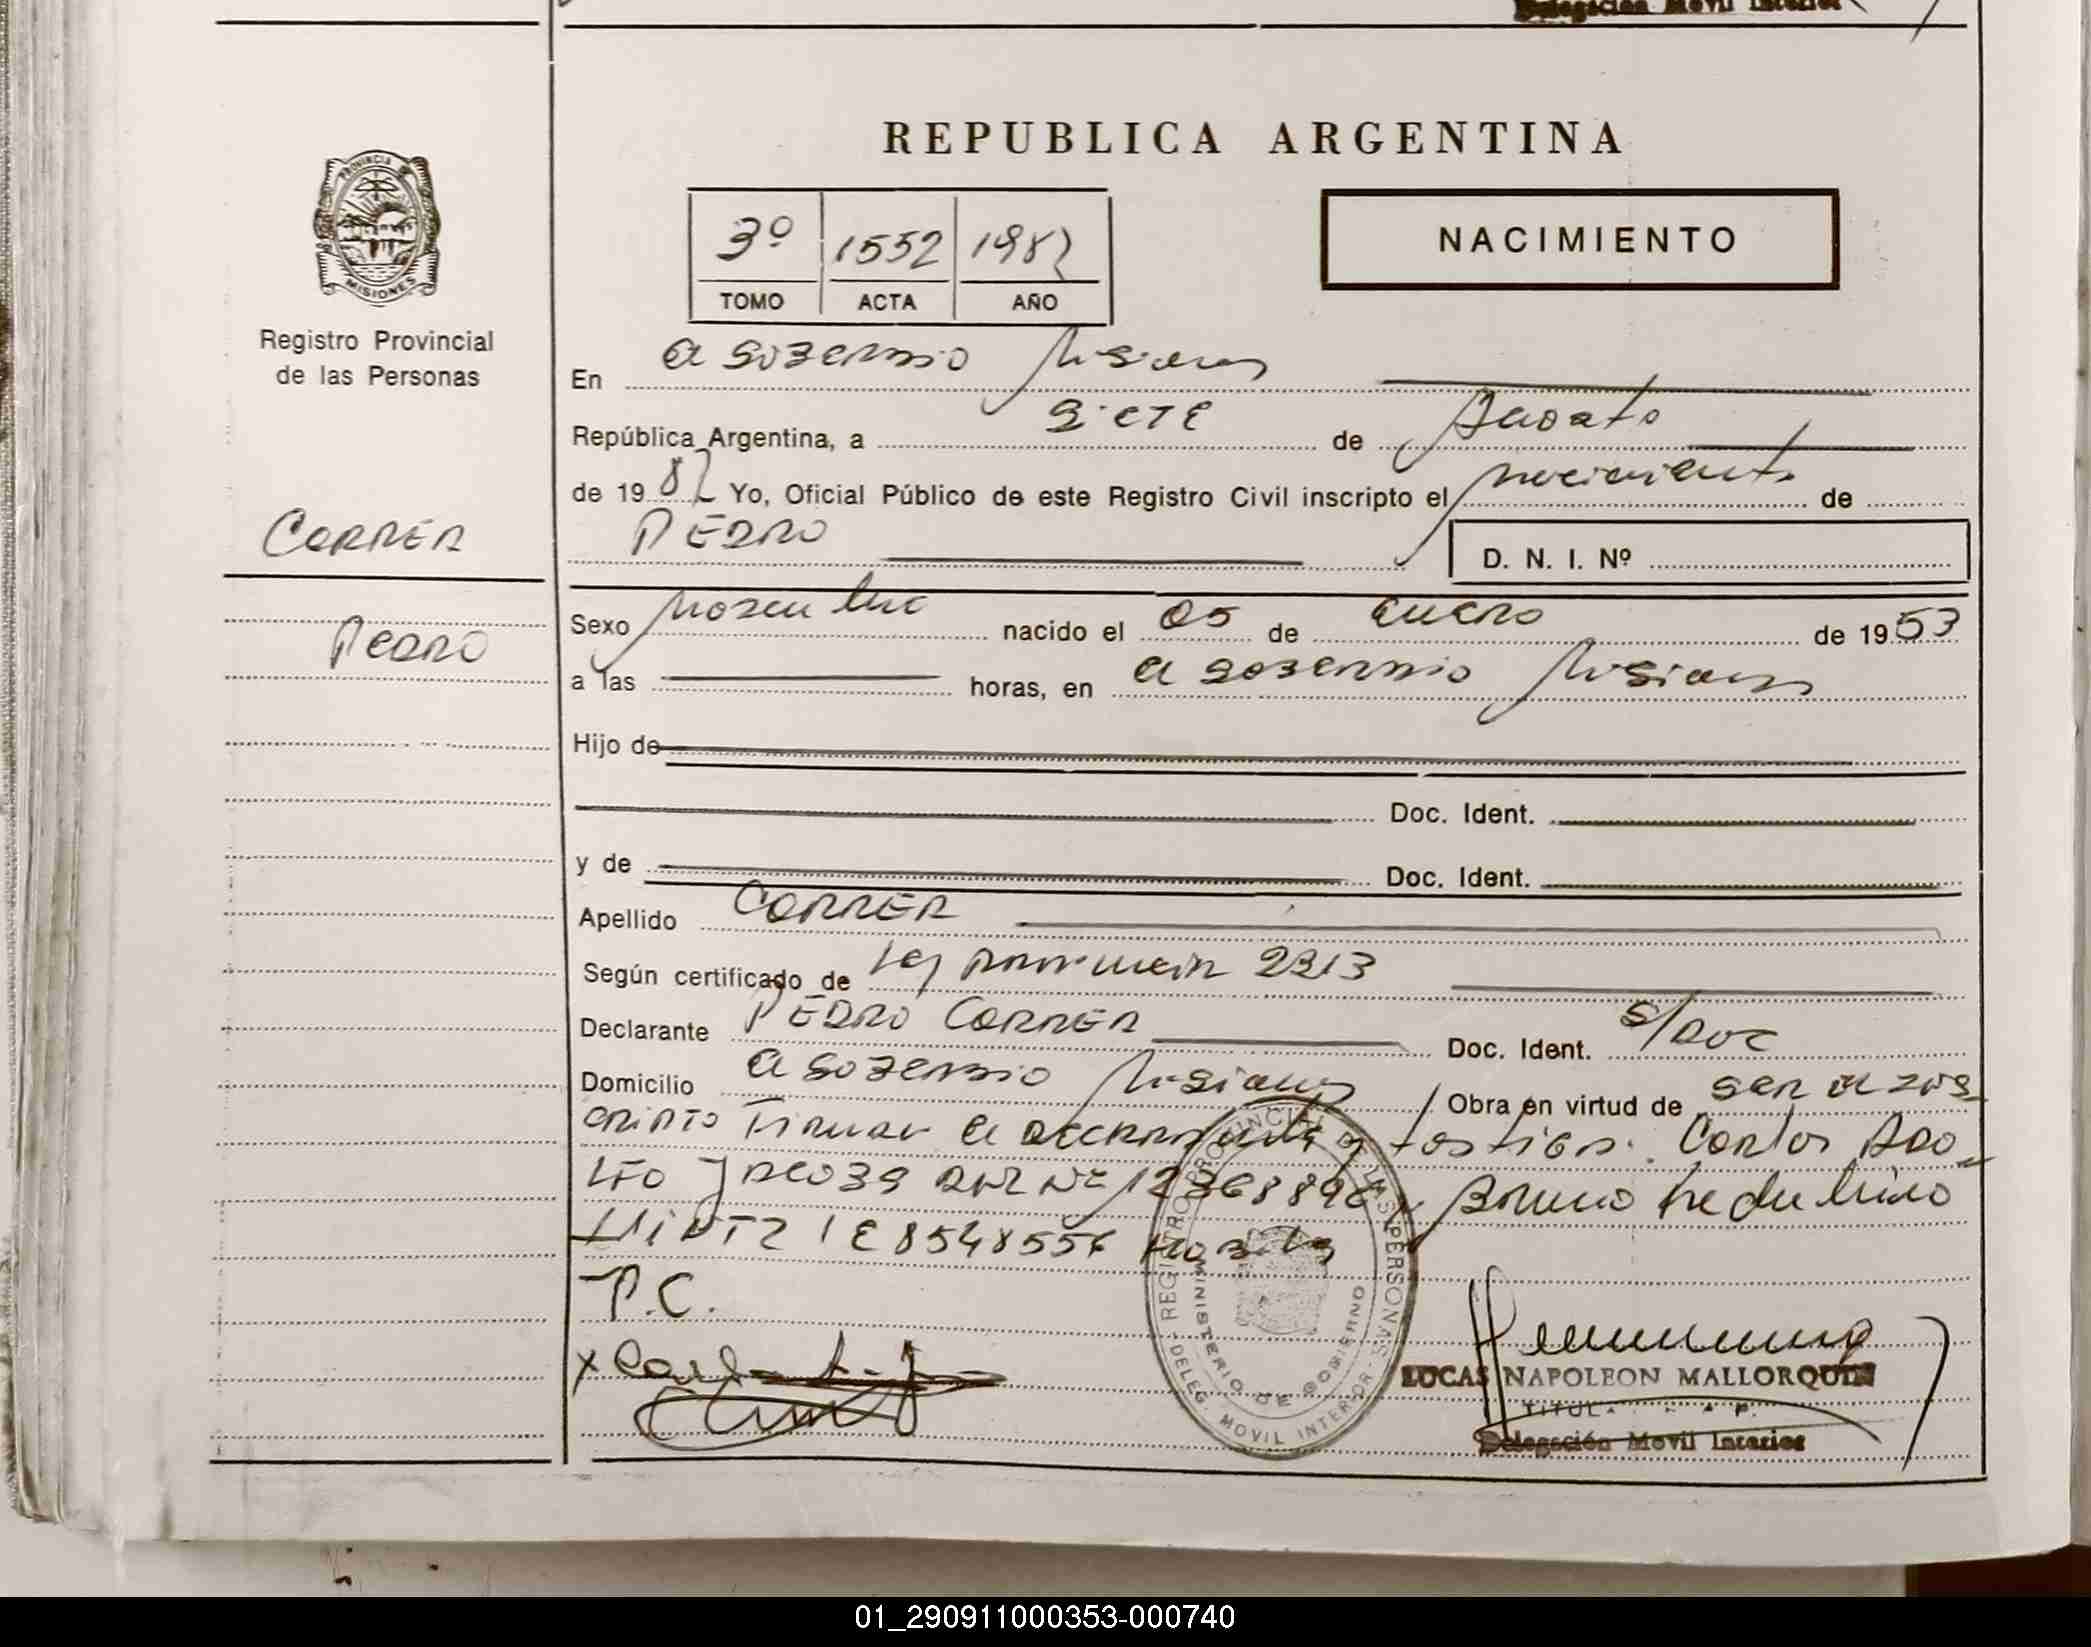 Delegación Movil Interior
REPUBLICA ARGENTINA
PROVINCIA DE MISIONES
3º 1552 1982
TOMO ACTA AÑO
NACIMIENTO
Registro Provincial
de las Personas
En el soberbio Misiones
República Argentina, a siete de Agosto
de 1982 Yo, Oficial Público de este Registro Civil inscripto el nacimiento de
CORRER
PEDRO D. N. I. Nº
Pedro
Sexo masculino nacido el 05 de enero de 1953
a las horas, en el soberbio Misiones
Hijo de
Doc. Ident.
y de Doc. Ident.
Apellido CORRER
Según certificado de ley provincial 2213
Declarante PEDRO CORRER Doc. Ident. s/Doc
Domicilio el soberbio Misiones Obra en virtud de ser de ins-
cripto Firman el declarante y testigos: Carlos Ado-
lfo DNI Nº 12368896 y Bruno
LE 8548556
P.C.
REGISTRO PROVINCIAL DE LAS PERSONAS
MINISTERIO DE GOBIERNO
DELEG. MOVIL INTERIOR
LUCAS NAPOLEON MALLORQUIN
Delegación Movil Interior
01_290911000353-000740